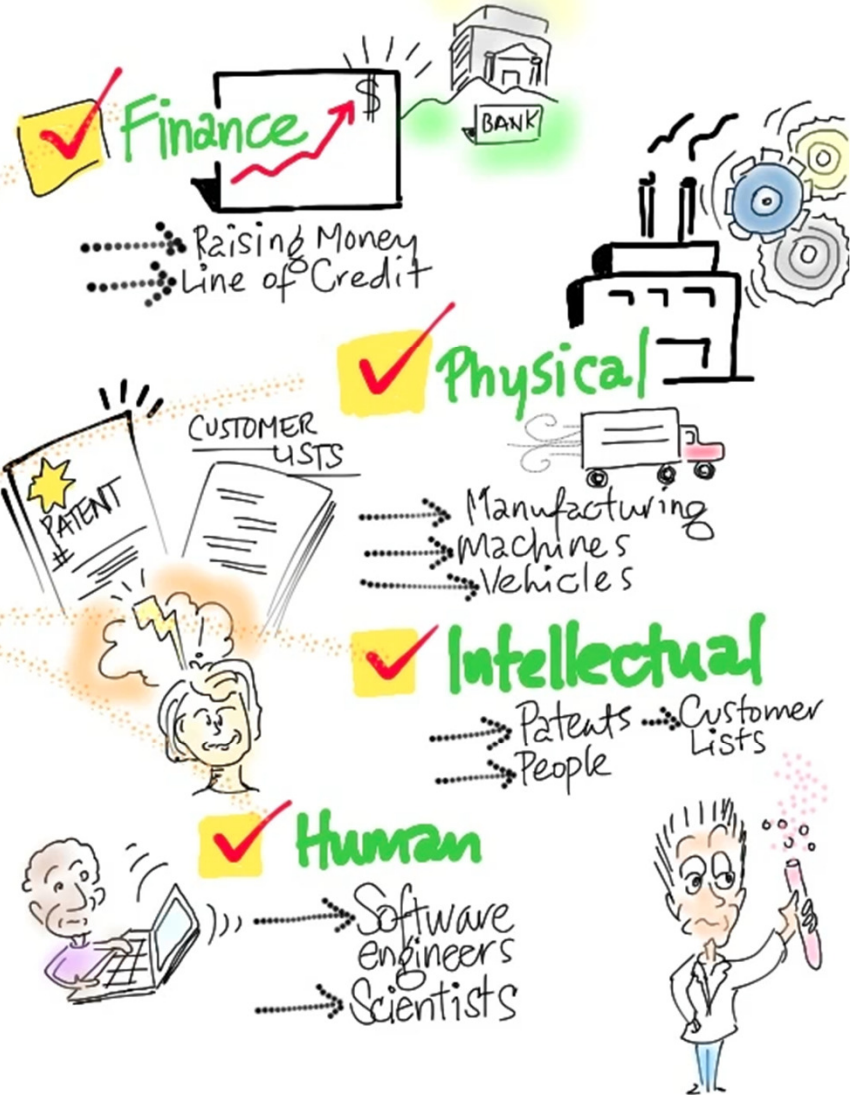 Finance
$
BANK
Raising Money
Line of Credit
Physical
CUSTOMER
LISTS
PATENT
#
Manufacturing
Machines
Vehicles
Intellectual
Patents → Customer
Lists
People
Human
Software
engineers
Scientists